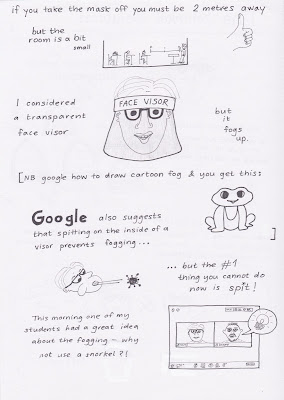 if you take the mask off you must be 2 metres away
but the
room is a bit
small
I considered
a transparent
face visor
FACE VISOR
but
it
fogs
up.
[NB google how to draw cartoon fog & you get this:
]
Google also suggests
that spitting on the inside of a
visor prevents fogging...
... but the #1
thing you cannot do
now is spit!
This morning one of my
students had a great idea
about the fogging – why
not use a snorkel?!